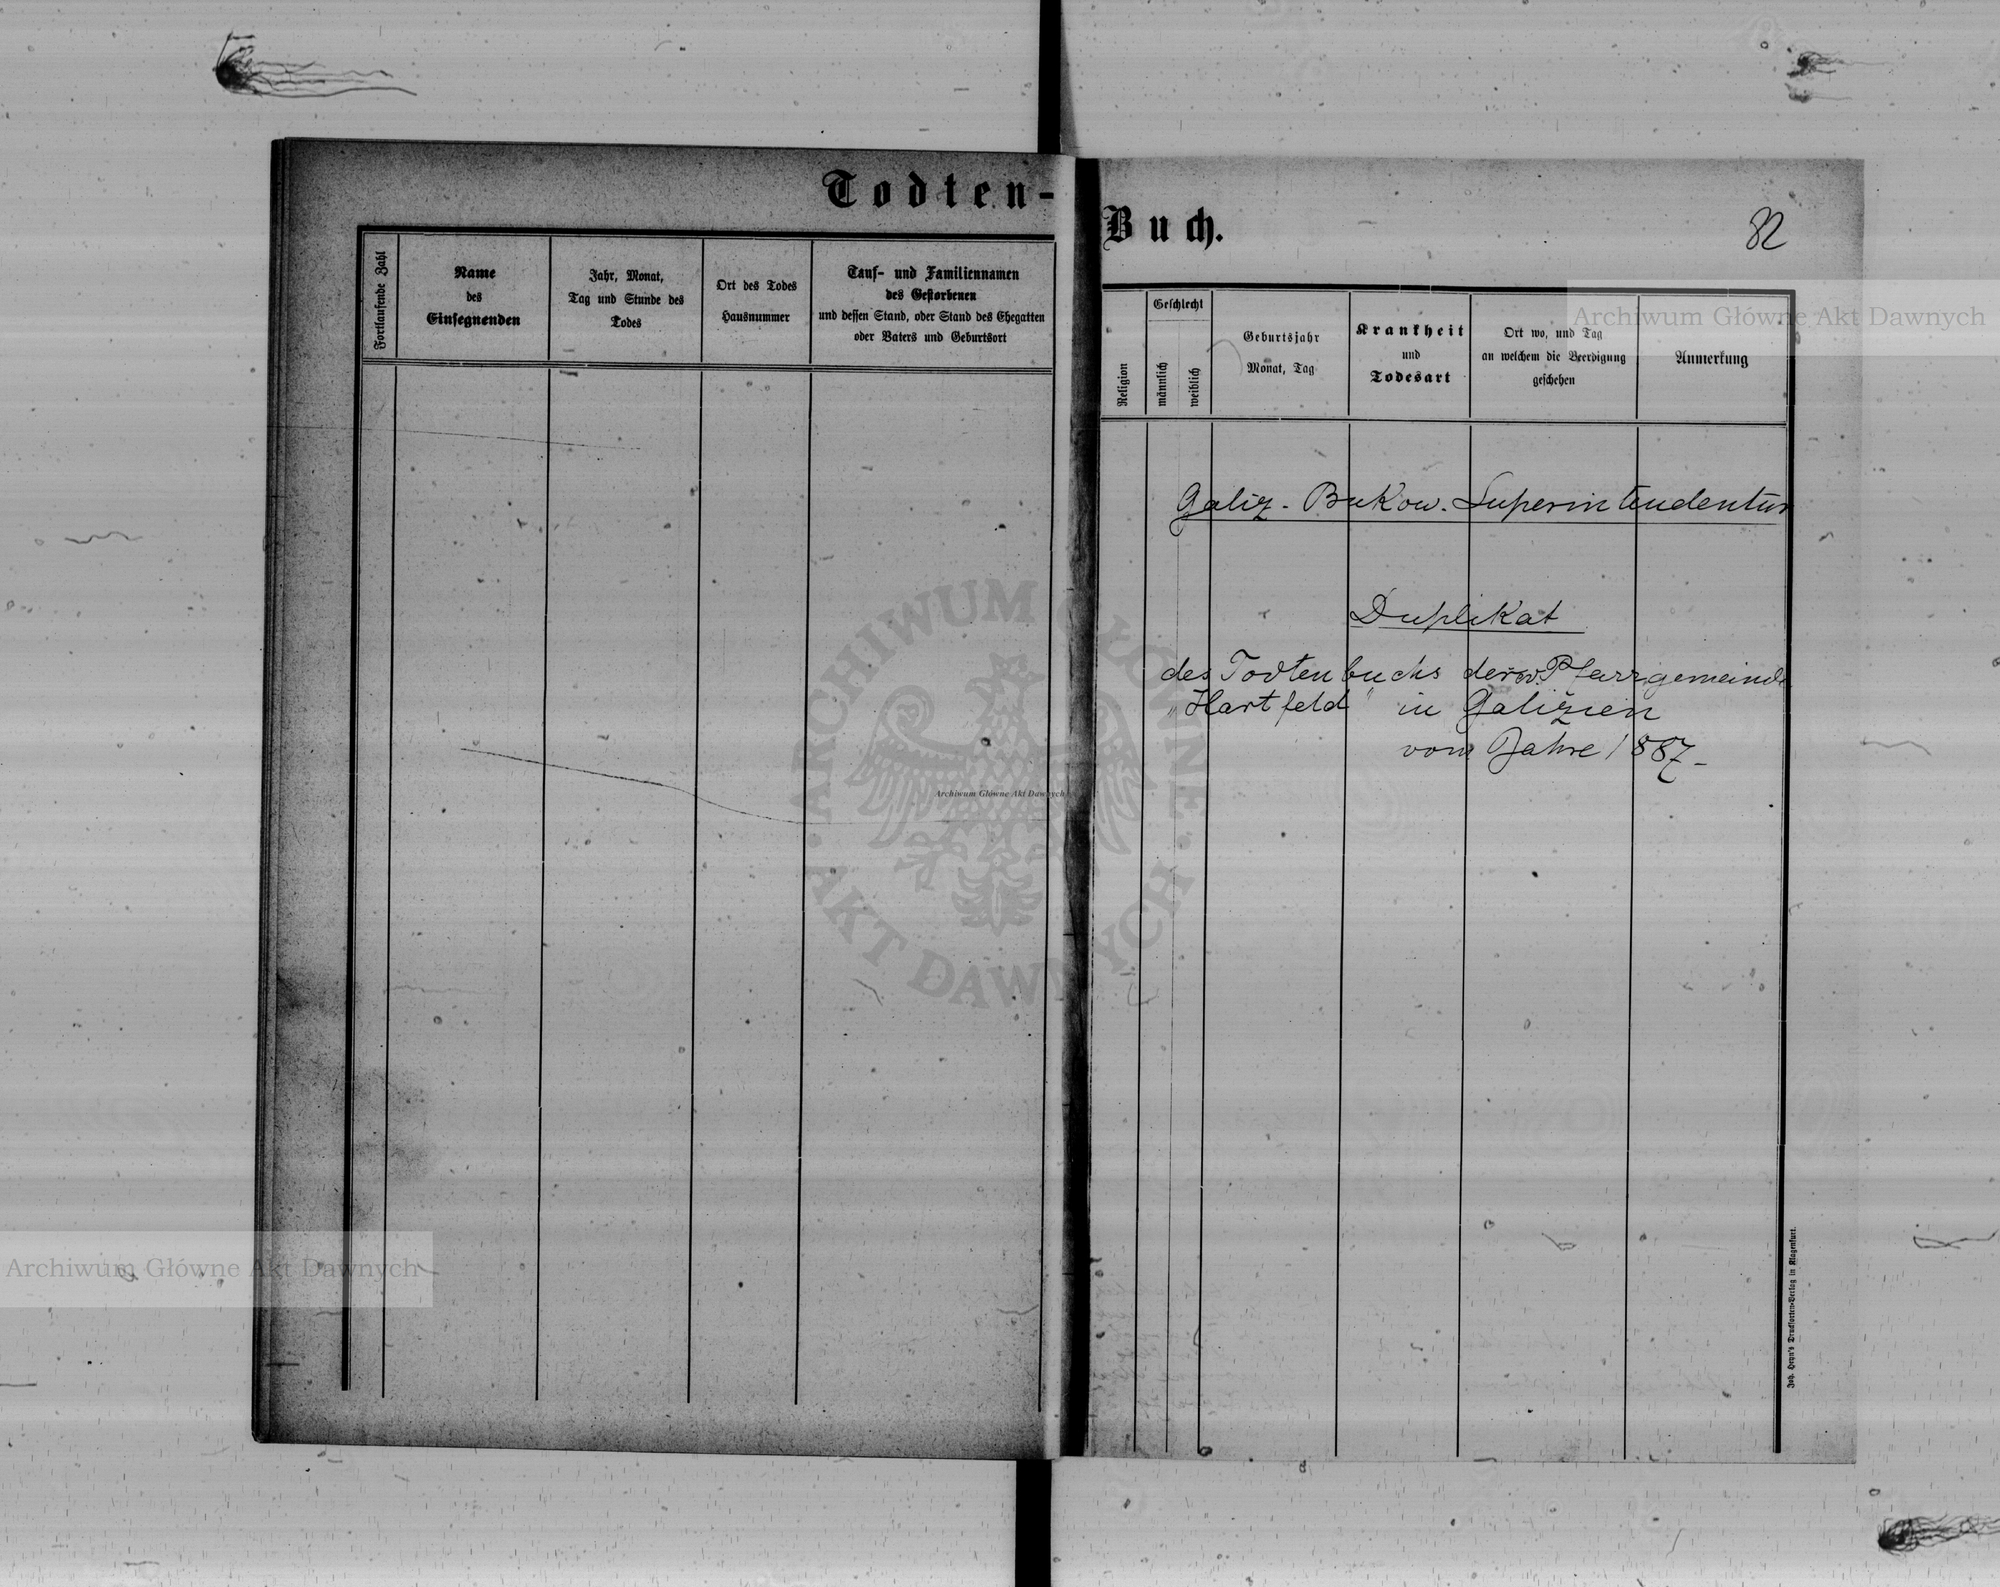 Todten-
Fortlaufende Zahl
Name
des
Einsegnenden
Jahr, Monat,
Tag und Stunde des
Todes
Ort des Todes
Hausnummer
Tauf- und Familiennamen
des Gestorbenen
und dessen Stand, oder Stand des Ehegatten
oder Vaters und Geburtsort
Buch.
82
Religion
Geschlecht
männlich
weiblich
Geburtsjahr
Monat, Tag
Krankheit
und
Todesart
Ort wo, und Tag
an welchem die Beerdigung
geschehen
Anmerkung
Galiz.- Bukow. Superintendentur
Duplikat
des Todtenbuchs der ev. Pfarrgemeinde
„Hartfeld" in Galizien
vom Jahre 1887.-
Joh. Heyn's Drucksorten-Verlag in Klagenfurt.
Archiwum Główne Akt Dawnych
ARCHIWUM GŁÓWNE
AKT DAWNYCH
Archiwum Główne Akt Dawnych
Archiwum Główne Akt Dawnych